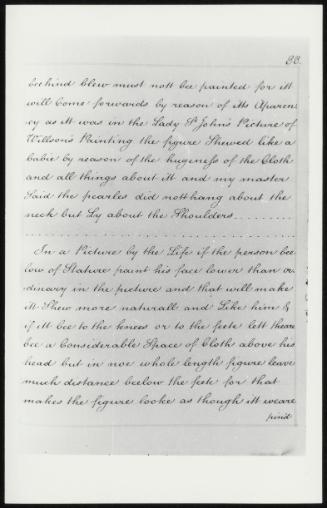 98.
beehind blew must nott bee painted for itt
will Come forwards by reason of itts Aparen
cy as itt was in the Lady St John's Picture of
Willson's Painting the figure Shewed like a
babie by reason of the hugeness of the Cloth
and all things about itt and my master
Said the pearles did nott hang about the
neck but Ly about the Shoulders............
....................................
In a Picture by the Life if the person bee
low of Stature paint his face lower than or
dinary in the picture and that will make
itt Shew more naturall and Like him &
if itt bee to the knees or to the feete lett theare
bee a Considerable Space of Cloth above his
head but in noe whole length figure leave
much distance beelow the feete for that
makes the figure looke as though itt weare
pind